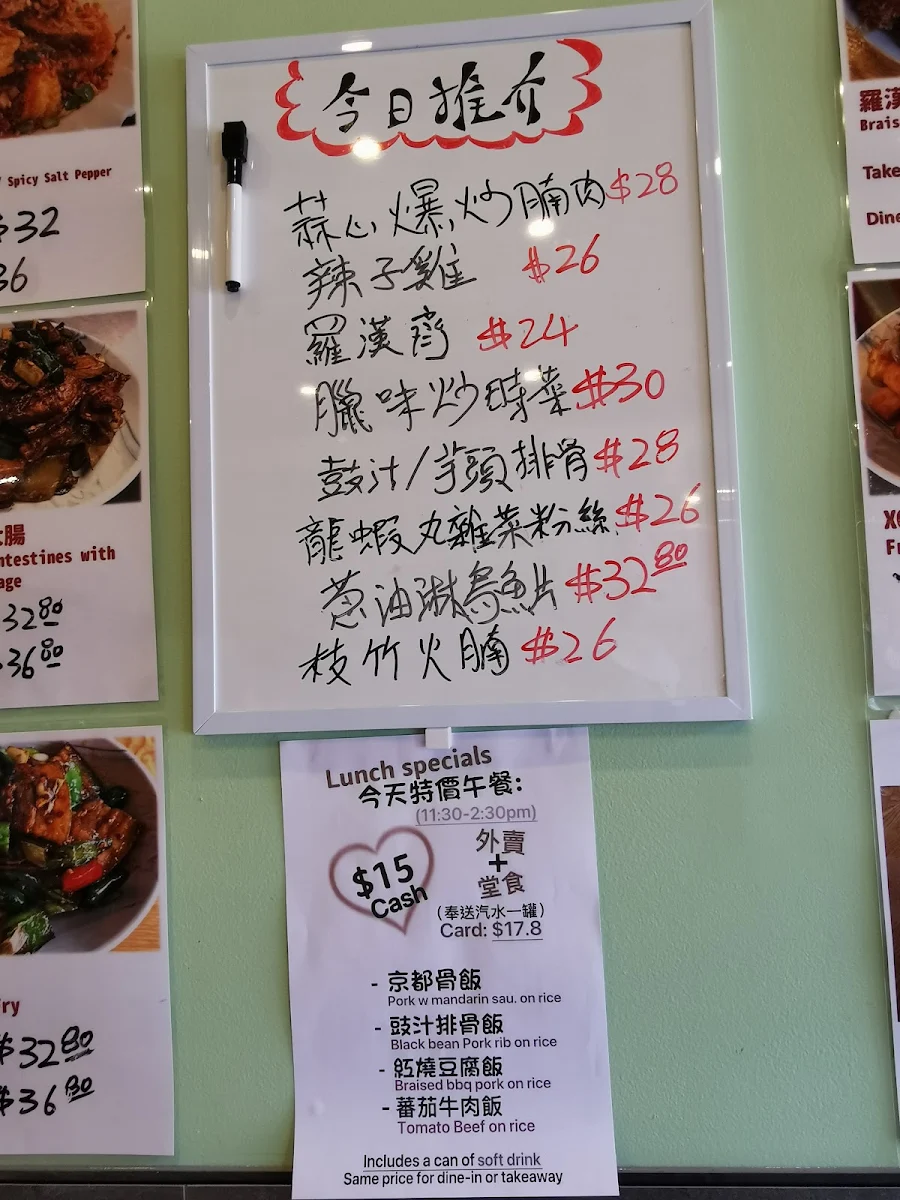 今日推介
蒜心爆炒腩肉$28
辣子雞 $26
羅漢齊 $24
臘味炒時菜$30
鼓汁/芋頭排骨$28
龍蝦丸雜菜粉絲$26
蔥油淋烏魚片$32.80
枝竹火腩$26
Lunch specials
今天特價午餐:
(11:30-2:30pm)
$15
Cash
外賣
+
堂食
(奉送汽水一罐)
Card: $17.8
- 京都骨飯
Pork w mandarin sau. on rice
- 豉汁排骨飯
Black bean Pork rib on rice
- 紅燒豆腐飯
Braised bbq pork on rice
- 蕃茄牛肉飯
Tomato Beef on rice
Includes a can of soft drink
Same price for dine-in or takeaway
Spicy Salt Pepper
$32
36
腸
ntestines with
age
32.80
36.80
ry
$32.80
$36.80
羅漢
Brais
Take
Dine
XO
Fr